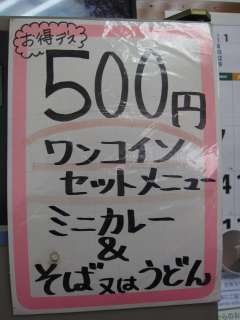 お得デス
500円
ワンコイン
セットメニュー
ミニカレー
&
そば又はうどん